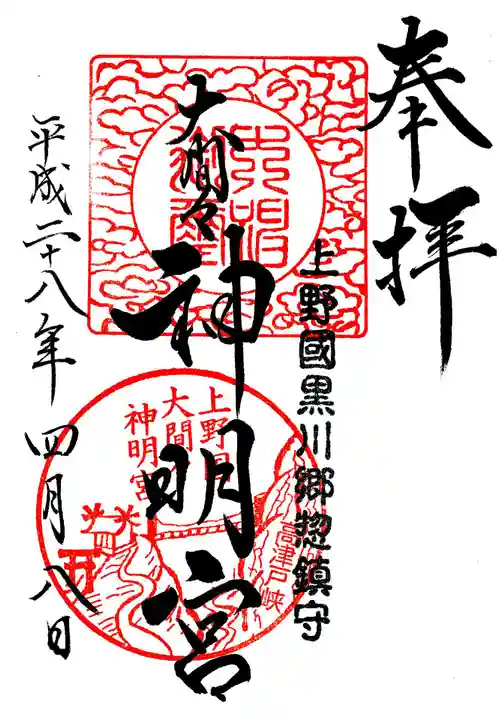 奉拝
上野國黒川郷惣鎮守
大間々
神明宮
平成二十八年四月八日
上野國
大間々
神明宮
高津戸峡